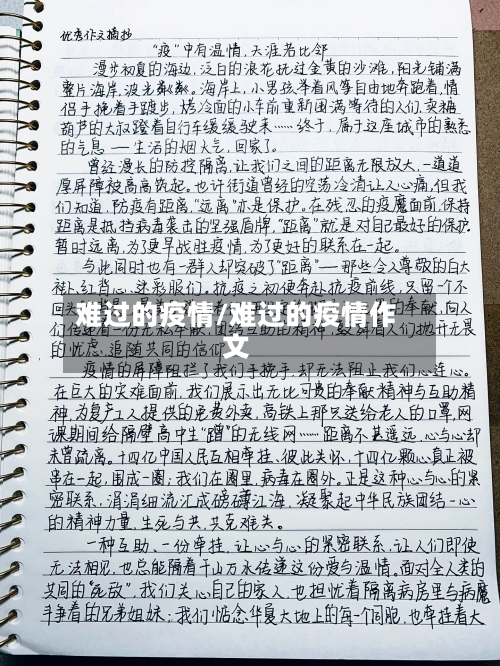 优秀作文摘抄
"疫"中有温情,天涯若比邻
漫步初夏的海边,泛白的浪花抚过金黄的沙滩,阳光铺满
整片海岸,波光粼粼。海岸上,小男孩举着风筝自由地奔跑着,情
侣手挽着手踱步,烤冷面的小车前重新围满等待的人们,卖糖
葫芦的大叔蹬着自行车缓缓驶来……终于,属于这座城市的熟悉
的气息——生活的烟火气,回家了。
曾经漫长的防控隔离,让我们之间的距离无限放大,一道道
厚屏障被高高筑起。也许街道曾经的空荡冷清让人心痛,但我
们知道,防疫有距离,"远离"亦是保护。在残忍的疫魔面前,保持
距离是抵挡病毒袭击的坚强盾牌,"距离"就是对自己最好的保护。
暂时远离,为了更早战胜疫情,为了更好的联系在一起。
与此同时也有一群人却突破了"距离"——那些令人尊敬的白大
褂、红背心、迷彩服们。抗疫之初便奔赴抗疫前线,只留一个不
的奉献,向人
难过的疫情/难过的疫情作
文
们抛开无畏
的忧虑,追随共同的信仰
疫情的屏障阻拦了我们手挽手,却无法阻止我们心连心。
在巨大的灾难面前,我们展示出无比可贵的奉献精神与互助精
神,为复产工人提供的免费外卖,高铁上那只送给老人的口罩,网
课期间给隔壁高中生"蹭"的无线网……距离不甚遥远,心与心却
未曾疏离。十四亿中国人民互相牵挂、彼此关怀,十四亿颗心真正被
串在一起,围成一圈;我们在圈里,病毒在圈外。正是这种心与心的紧
密联系,涓涓细流汇成磅礴江海,凝聚起中华民族团结一心
的精神力量,生死与共,共克难关。
一种互助、一份牵挂,让心与心的紧密联系,让人们即使
无法相见,也总能隔着千山万水传递这份爱与温情。面对全人类的
共同的"死敌",我们关心自己的家人,也担忧着隔离病房里与病魔
斗争着的兄弟姐妹;我们惦念华夏大地上的每一个同胞,也牵挂着大